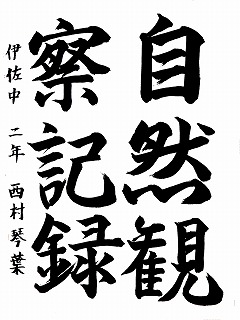 自然観
察記録
伊佐中 二年 西村琴葉